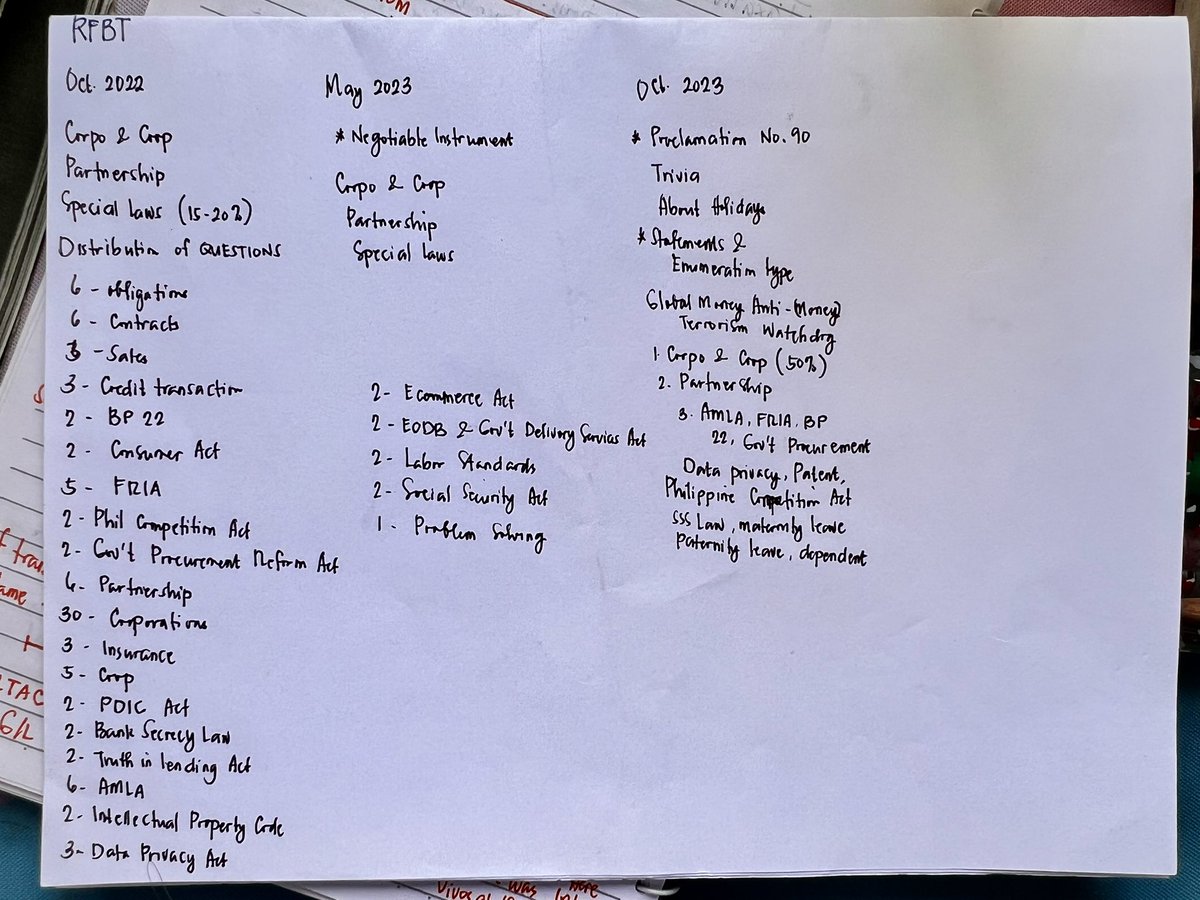 RFBT
Oct. 2022
Corpo & Coop
Partnership
Special laws (15-20%)
Distribution of QUESTIONS
6 - obligations
6 - Contracts
3 - Sales
3 - Credit transaction
2 - BP 22
2 - Consumer Act
5 - FRIA
2 - Phil Competition Act
2 - Gov't Procurement Reform Act
6 - Partnership
30 - Corporations
3 - Insurance
5 - Coop
2 - PDIC Act
2 - Bank Secrecy Law
2 - Truth in lending Act
6 - AMLA
2 - Intellectual Property Code
3 - Data Privacy Act
May 2023
* Negotiable Instrument
Corpo & Coop
Partnership
Special laws
2 - Ecommerce Act
2 - EODB & Gov't Delivery Services Act
2 - Labor Standards
2 - Social Security Act
1 - Problem Solving
Oct. 2023
* Proclamation No. 90
Trivia
About Holidays
* Statements &
Enumeration type
Global Money Anti-(Money)
Terrorism Watchdog
1. Corpo & Coop (50%)
2. Partnership
3. AMLA, FRIA, BP
22, Gov't Procurement
Data privacy, Patent,
Philippine Competition Act
SSS Law, maternity leave
Paternity leave, dependent
LTAC
G/L
was